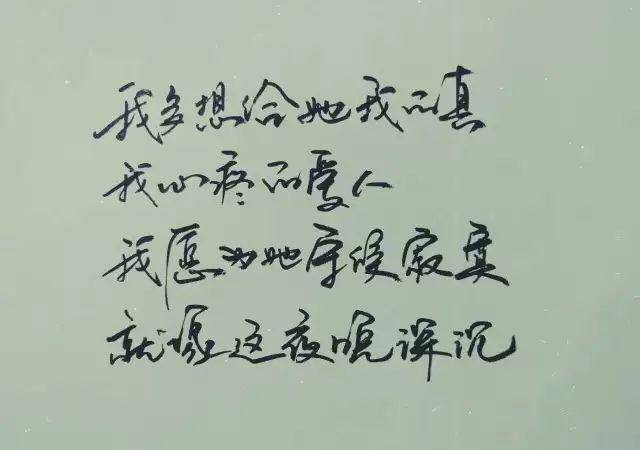 我多想给她我的真
我心疼的爱人
我愿为她守候寂寞
就算这夜晚深沉